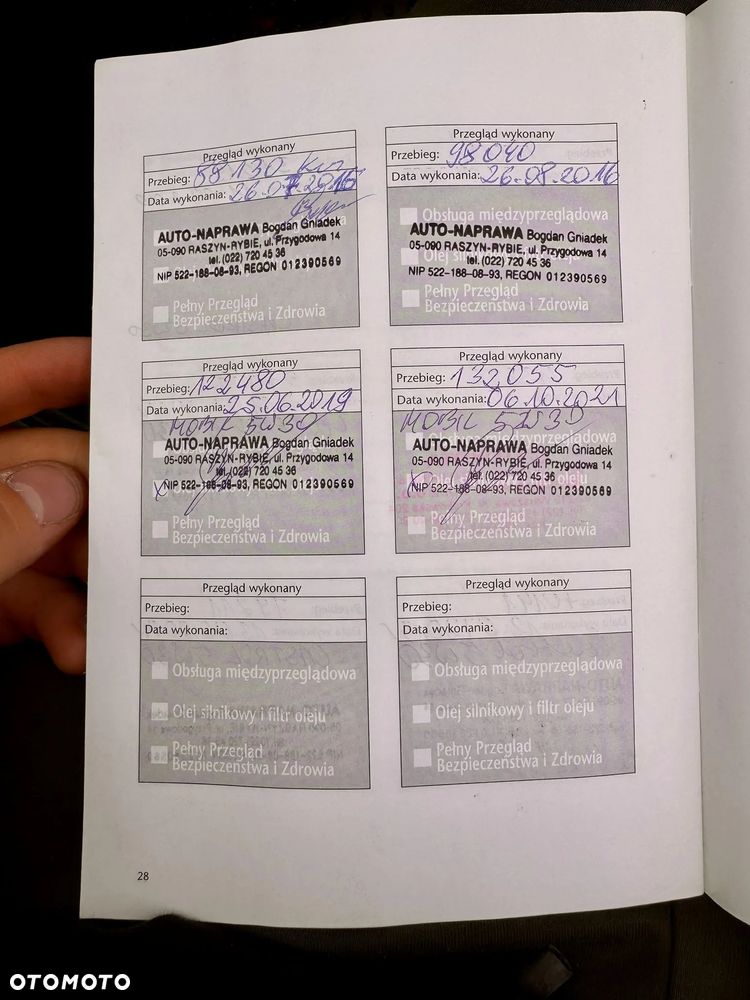 Przegląd wykonany
Przebieg: 88130 km
Data wykonania: 26.07.2015
AUTO-NAPRAWA Bogdan Gniadek
05-090 RASZYN-RYBIE, ul. Przygodowa 14
tel. (022) 720 45 36
NIP 522-188-08-93, REGON 012390569
Pełny Przegląd
Bezpieczeństwa i Zdrowia
Przegląd wykonany
Przebieg: 98040
Data wykonania: 26.08.2016
Obsługa międzyprzeglądowa
AUTO-NAPRAWA Bogdan Gniadek
05-090 RASZYN-RYBIE, ul. Przygodowa 14
tel. (022) 720 45 36
NIP 522-188-08-93, REGON 012390569
Pełny Przegląd
Bezpieczeństwa i Zdrowia
Przegląd wykonany
Przebieg: 122480
Data wykonania: 25.06.2019
MOBIL 5W30
AUTO-NAPRAWA Bogdan Gniadek
05-090 RASZYN-RYBIE, ul. Przygodowa 14
tel. (022) 720 45 36
NIP 522-188-08-93, REGON 012390569
Pełny Przegląd
Bezpieczeństwa i Zdrowia
Przegląd wykonany
Przebieg: 132055
Data wykonania: 06.10.2021
MOBIL 5W30
AUTO-NAPRAWA Bogdan Gniadek
05-090 RASZYN-RYBIE, ul. Przygodowa 14
tel. (022) 720 45 36
NIP 522-188-08-93, REGON 012390569
Pełny Przegląd
Bezpieczeństwa i Zdrowia
Przegląd wykonany
Przebieg:
Data wykonania:
Obsługa międzyprzeglądowa
Olej silnikowy i filtr oleju
Pełny Przegląd
Bezpieczeństwa i Zdrowia
Przegląd wykonany
Przebieg:
Data wykonania:
Obsługa międzyprzeglądowa
Olej silnikowy i filtr oleju
Pełny Przegląd
Bezpieczeństwa i Zdrowia
28
OTOMOTO